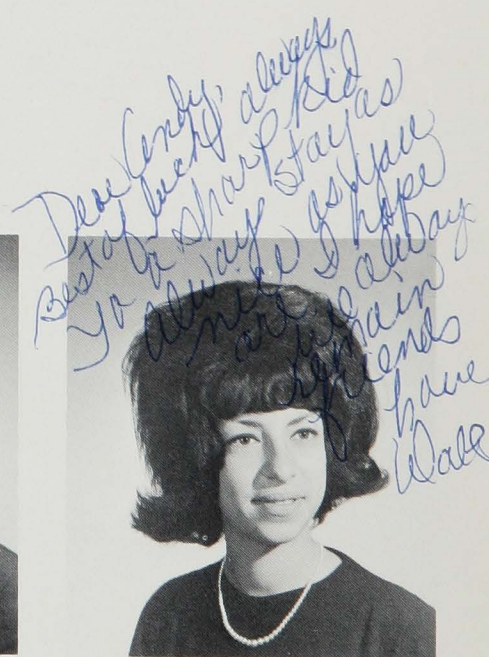 Dear Cindy,
Best of luck always
To a sharp kid
always Stay as
nice as you
are I hope
we always
remain
friends
Love